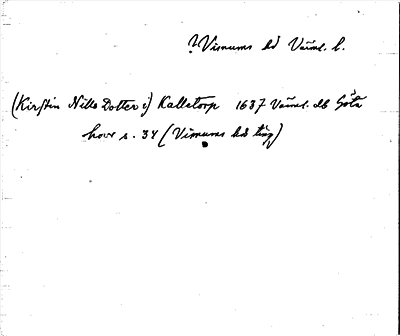 ?Visnums hd Värml. l.
(Kirstin Nills Dotter i) Kalletorp 1637 Värml. db Göta
hovr s. 34 (Visnums hds ting)